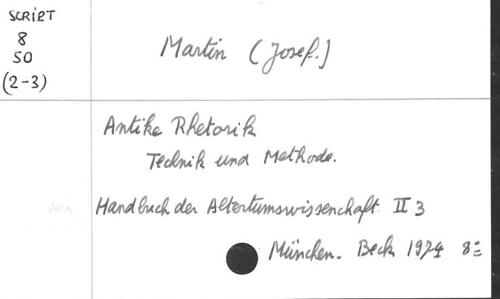 SCRIPT
8
50
(2-3)
Martin (Josef.)
Antike Rhetorik
Technik und Methode.
Handbuch der Altertumswissenchaft II 3
München. Beck 1974 8=